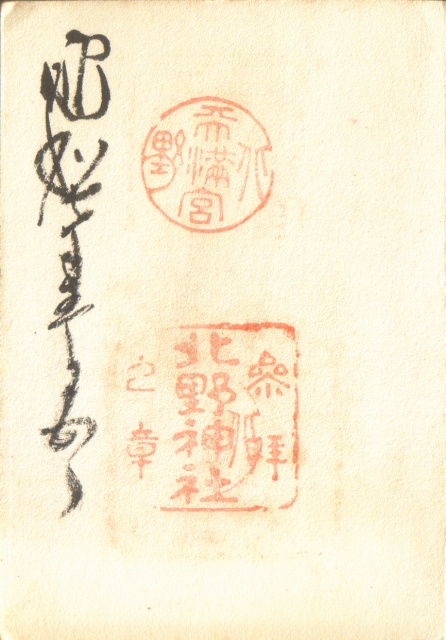 北
天満宮
野
參拜
北野神社
之章
昭和十年